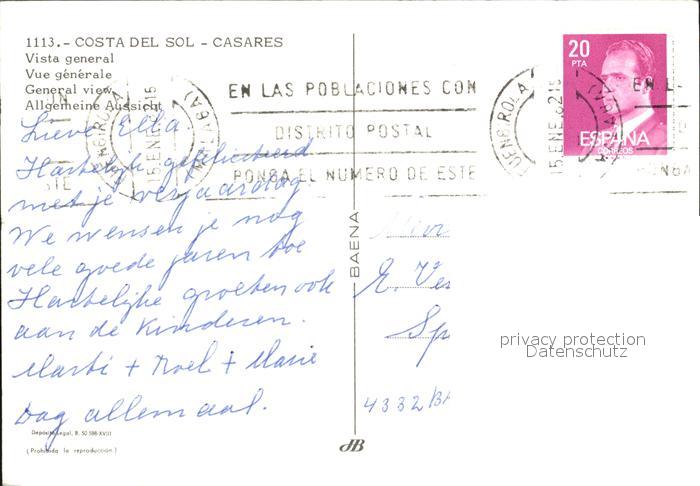 1113.- COSTA DEL SOL - CASARES
Vista general
Vue générale
General view
Allgemeine Aussicht
EN LAS POBLACIONES CON
DISTRITO POSTAL
PONGA EL NUMERO DE ESTE
15 ENE 82
20
PTA
ESPAÑA
CORREOS
Lieve Ella
Hartelijk gefeliciteerd
met je verjaardag
We wensen je nog
vele goede jaren toe
Hartelijke groeten ook
aan de kinderen.
+ Roel + Marie
Dag allemaal.
BAENA
E. Ve
Sp
4332
privacy protection
Datenschutz
Depósito Legal, B. 50.586-XVIII
(Prohibida la reproducción)